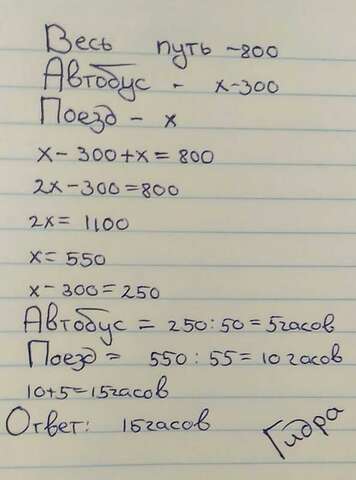 Весь путь - 800
Автобус - х-300
Поезд - х
х-300+х=800
2х-300=800
2х=1100
х=550
х-300=250
Автобус = 250:50=5часов
Поезд = 550:55=10часов
10+5=15часов
Ответ: 15часов
Гидра